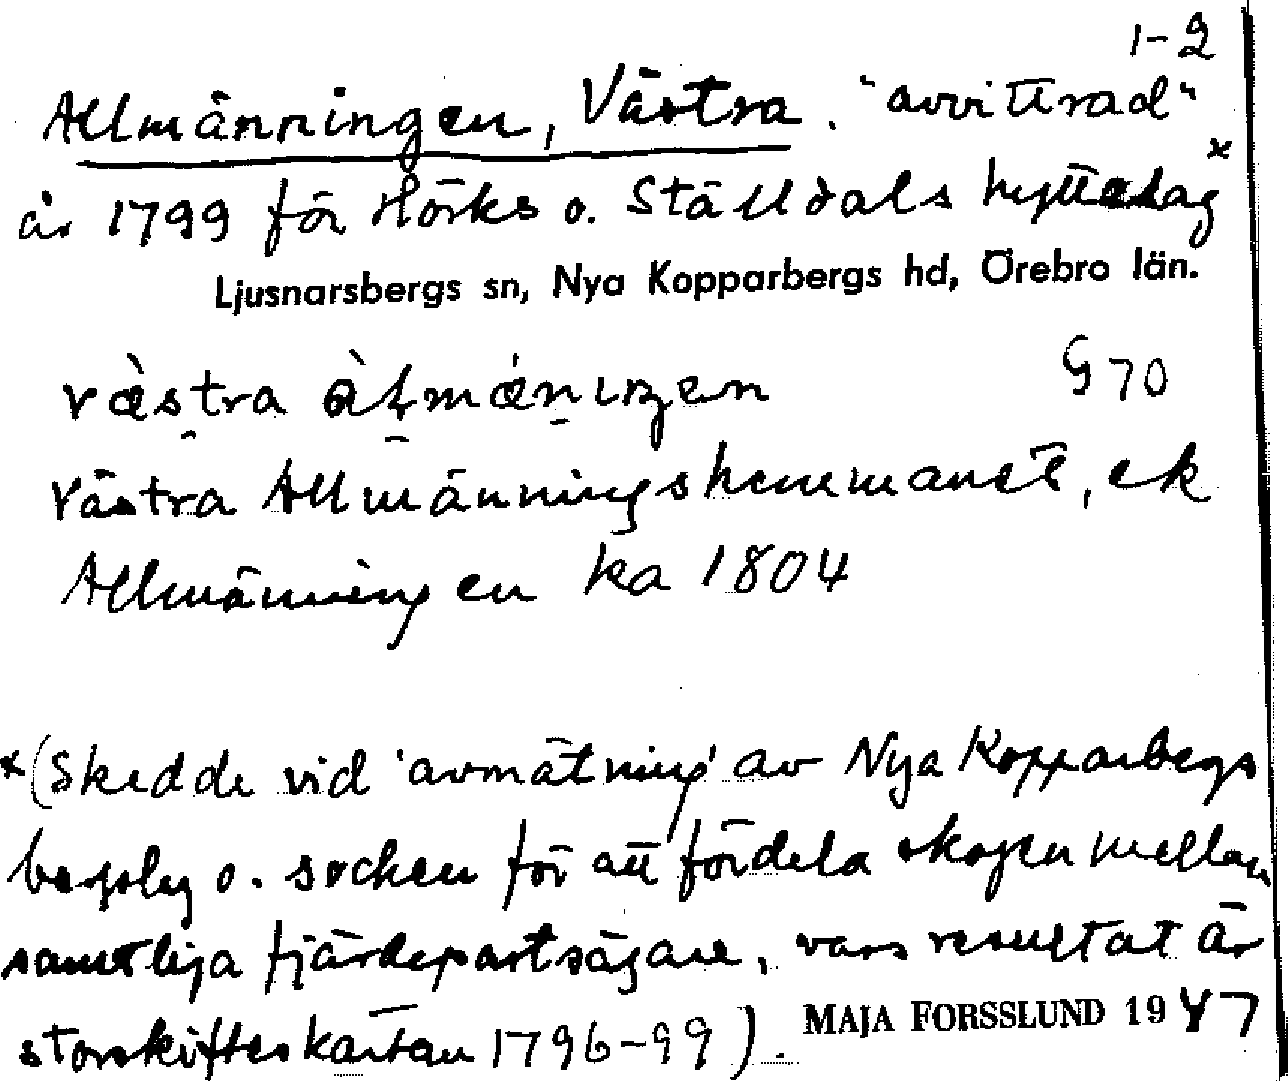 1-2
Allmänningen, Västra. "avvittrad"
år 1799 för Hörks o. Ställdals hyttelag*
Ljusnarsbergs sn, Nya Kopparbergs hd, Örebro län.
G 70
Västra Allmänningshemmanet, ek
Allmänningen ka 1804
*(Skedde vid 'avmätning' av Nya Kopparbergs
bergslag o. socken för att fördela skogen mellan
samtliga fjärdepartsägare, vars resultat är
storskifteskartan 1796-99).
MAJA FORSSLUND 1947